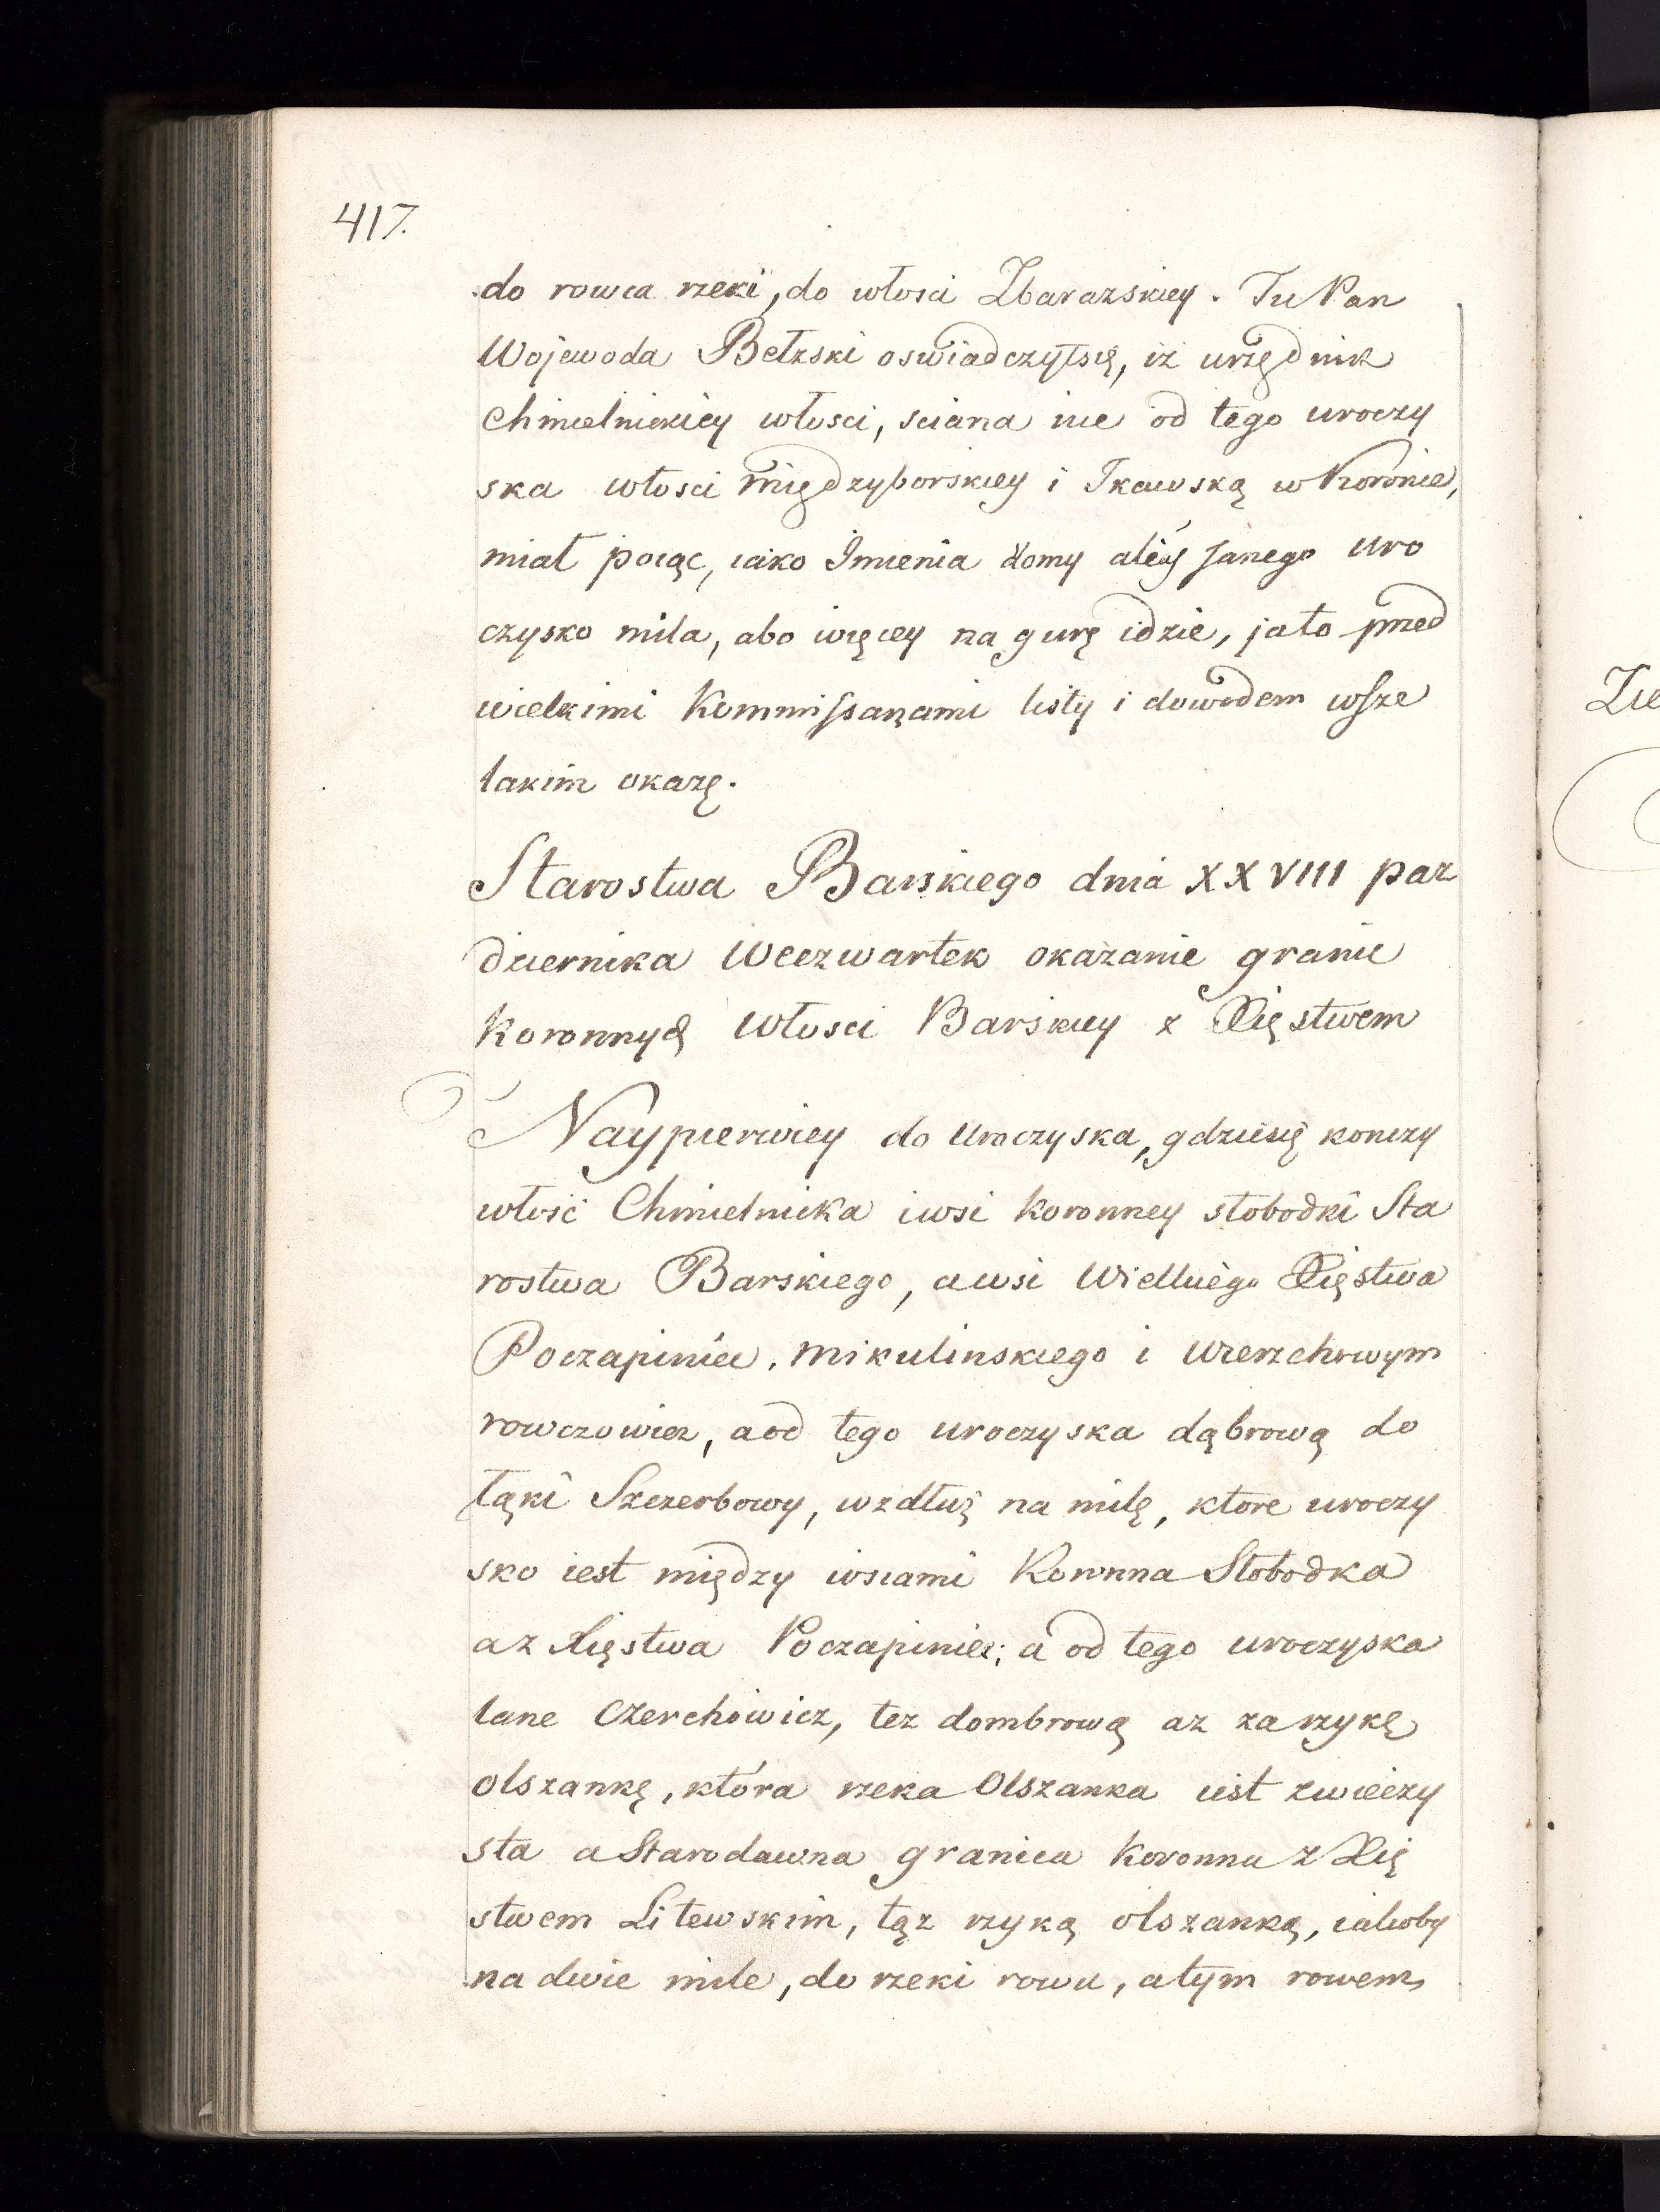 417.
do rowca rzeki, do włosci Zbarazskiey. Tu Pan
Wojewoda Bełzski oswiadczył się, iż urzędnik
Chmielnickiey włosci, sciana nie od tego uroczy
ska włosci międzyborskiey i Ikawską w Koronie,
miał począc, iako Imienia domy aliás Janego uro
czysko mila, abo więcey na gurę idzie, ja to przed
wielkimi Kommissarzami listy i dowodem wsze
lakim okazę.
Starostwa Barskiego dnia XXVIII paz
dziernika Weczwartek okazanie granic
Koronnych Włosci Barskiey z Xięstwem
Naypierwiey do Uroczyska, gdziesię konczy
włość Chmielnika iwsi koronney słobodki Sta
rostwa Barskiego, awsi Wielkiego Xięstwa
Poczapiniec, mikulinskiego i Wierzchowym
rowczowicz, aod tego uroczyska dąbrową do
łąki Szczerbowy, wzdłuż na milę, ktore uroczy
sko iest między wsiami Koronna Słobodka
a z Xięstwa Poczapiniec; a od tego uroczyska
lane Czerchowicz, tez dombrową az za rzykę
Olszankę, która rzeka Olszanka iest zwieczy
sta a Starodawna granica Koronna z Xię
stwem Litewskim, tąz rzyką olszanką, iakoby
na dwie mile, do rzeki rowu, atym rowem
Zie